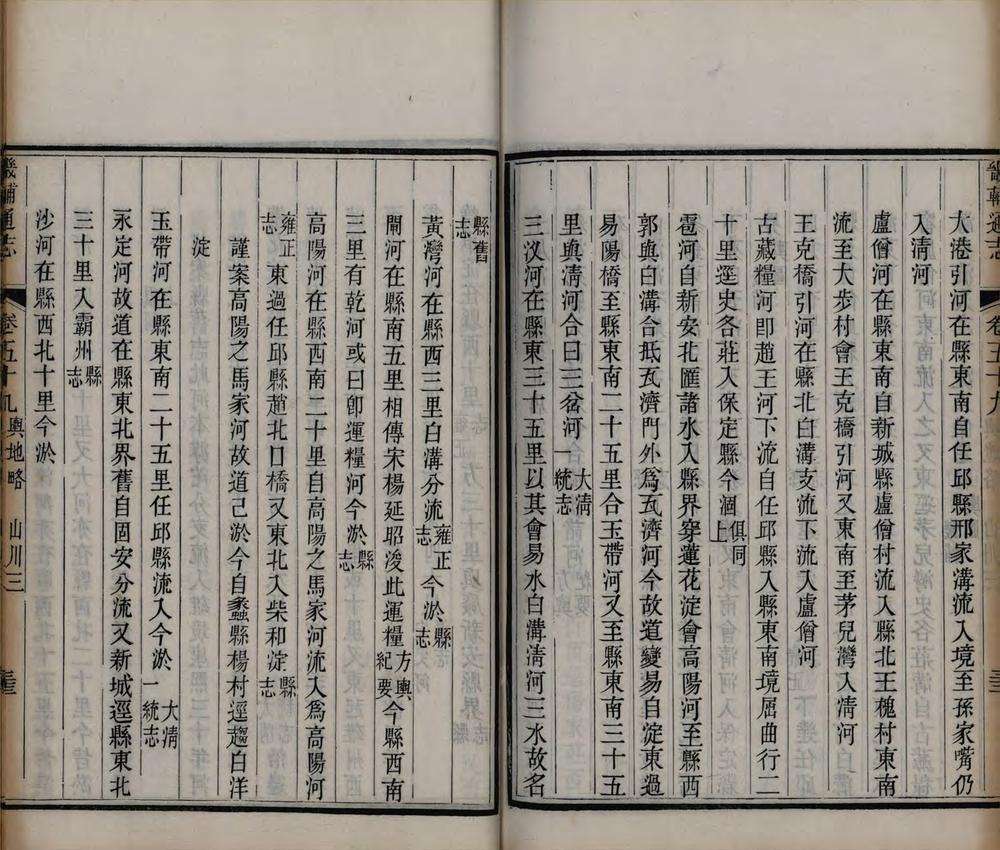 畿輔通志 卷五十九
大港引河在縣東南自任邱縣邢家溝流入境至孫家嘴仍
入淸河
盧僧河在縣東南自新城縣盧僧村流入縣北王槐村東南
流至大步村會王克橋引河又東南至茅兒灣入淸河
王克橋引河在縣北白溝支流下流入盧僧河
古藏糧河卽趙王河下流自任邱縣入縣東南境屈曲行二
十里逕史各莊入保定縣今涸俱同上
雹河自新安北匯諸水入縣界穿蓮花淀會高陽河至縣西
郭與白溝合抵瓦濟門外爲瓦濟河今故道變易自淀東過
易陽橋至縣東南二十五里合玉帶河又至縣東南三十五
里與淸河合曰三岔河大淸一統志
三汊河在縣東三十五里以其會易水白溝淸河三水故名
縣舊志
黃灣河在縣西三里白溝分流雍正志今淤縣志
閘河在縣南五里相傳宋楊延昭浚此運糧方輿紀要今縣西南
三里有乾河或曰卽運糧河今淤縣志
高陽河在縣西南二十里自高陽之馬家河流入爲高陽河
雍正志東過任邱縣趙北口橋又東北入柴和淀縣志
謹案高陽之馬家河故道已淤今自蠡縣楊村逕趨白洋
淀
玉帶河在縣東南二十五里任邱縣流入今淤大淸一統志
永定河故道在縣東北界舊自固安分流又新城逕縣東北
三十里入霸州縣志
沙河在縣西北十里今淤
畿輔通志 卷五十九 輿地略 山川三